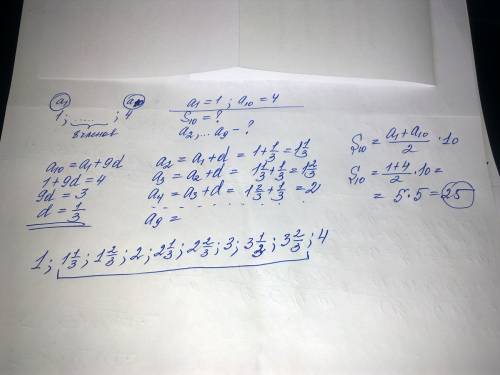 a₁ a₁₀
1; ......... ; 4
8 членов
a₁ = 1 ; a₁₀ = 4
S₁₀ = ?
a₂, ... a₉ - ?
a₁₀ = a₁ + 9d
1 + 9d = 4
9d = 3
d = 1/3
a₂ = a₁ + d = 1 + 1/3 = 1 1/3
a₃ = a₂ + d = 1 1/3 + 1/3 = 1 2/3
a₄ = a₃ + d = 1 2/3 + 1/3 = 2
a₉ =
S₁₀ = (a₁ + a₁₀)/2 · 10
S₁₀ = (1 + 4)/2 · 10 =
= 5 · 5 = 25
1; 1 1/3; 1 2/3; 2; 2 1/3; 2 2/3; 3; 3 1/3; 3 2/3; 4